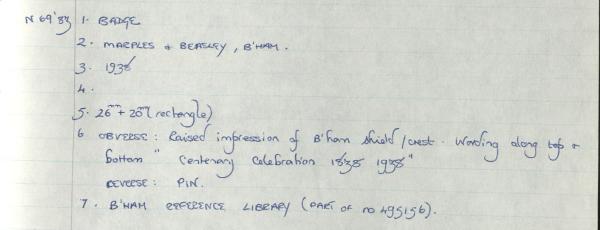 N 69'82 1. BADGE
2. MARPLES + BEASLEY, B'HAM.
3. 1938
4.
5. 26mm + 20mm (rectangle)
6 OBVERSE: Raised impression of B'ham shield/crest. Wording along top +
bottom "Centenary Celebration 1838 1938"
REVERSE: PIN.
7. B'HAM REFERENCE LIBRARY (PART OF no 495156).